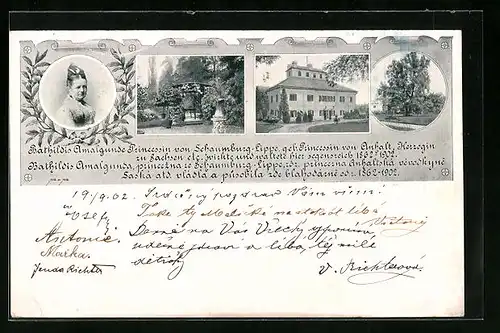 Bathildis Amalgunde Prinzessin von Schaumburg-Lippe, geb. Prinzessin von Anhalt, Herzogin
zu Sachsen etc. wirkte und waltete hier segensreich 1862-1902.
Bathildis Amalgunda, princezna ze Schaumburg-Lippe, roz. princezna Anhaltská, vévodkyně
Saská atd. vládla a působila zde blahodárně od r. 1862-1902.
19/9.02. Srdečný pozdrav Vám všem!
Josef
Také ty Matičko na stokrát líbá
Antonie
Marka.
Jenda Richter
na Vás Všecky vzpomíná,
a líbá, Tvé milé
dítky
V. Richterová.